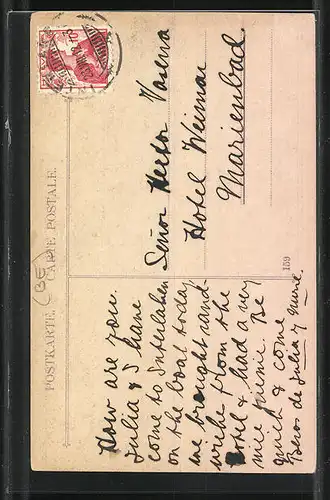 POSTKARTE. CARTE POSTALE.
(BE)
How are you.
Julia & I have
come to Interlaken
on the boat today
we brought sand-
wiche from the
hotel & had a very
nice picnic. Be
quick & come
Beso de Julia y Marie.
Señor Hector Varena
Hotel Weimar
Marienbad
159